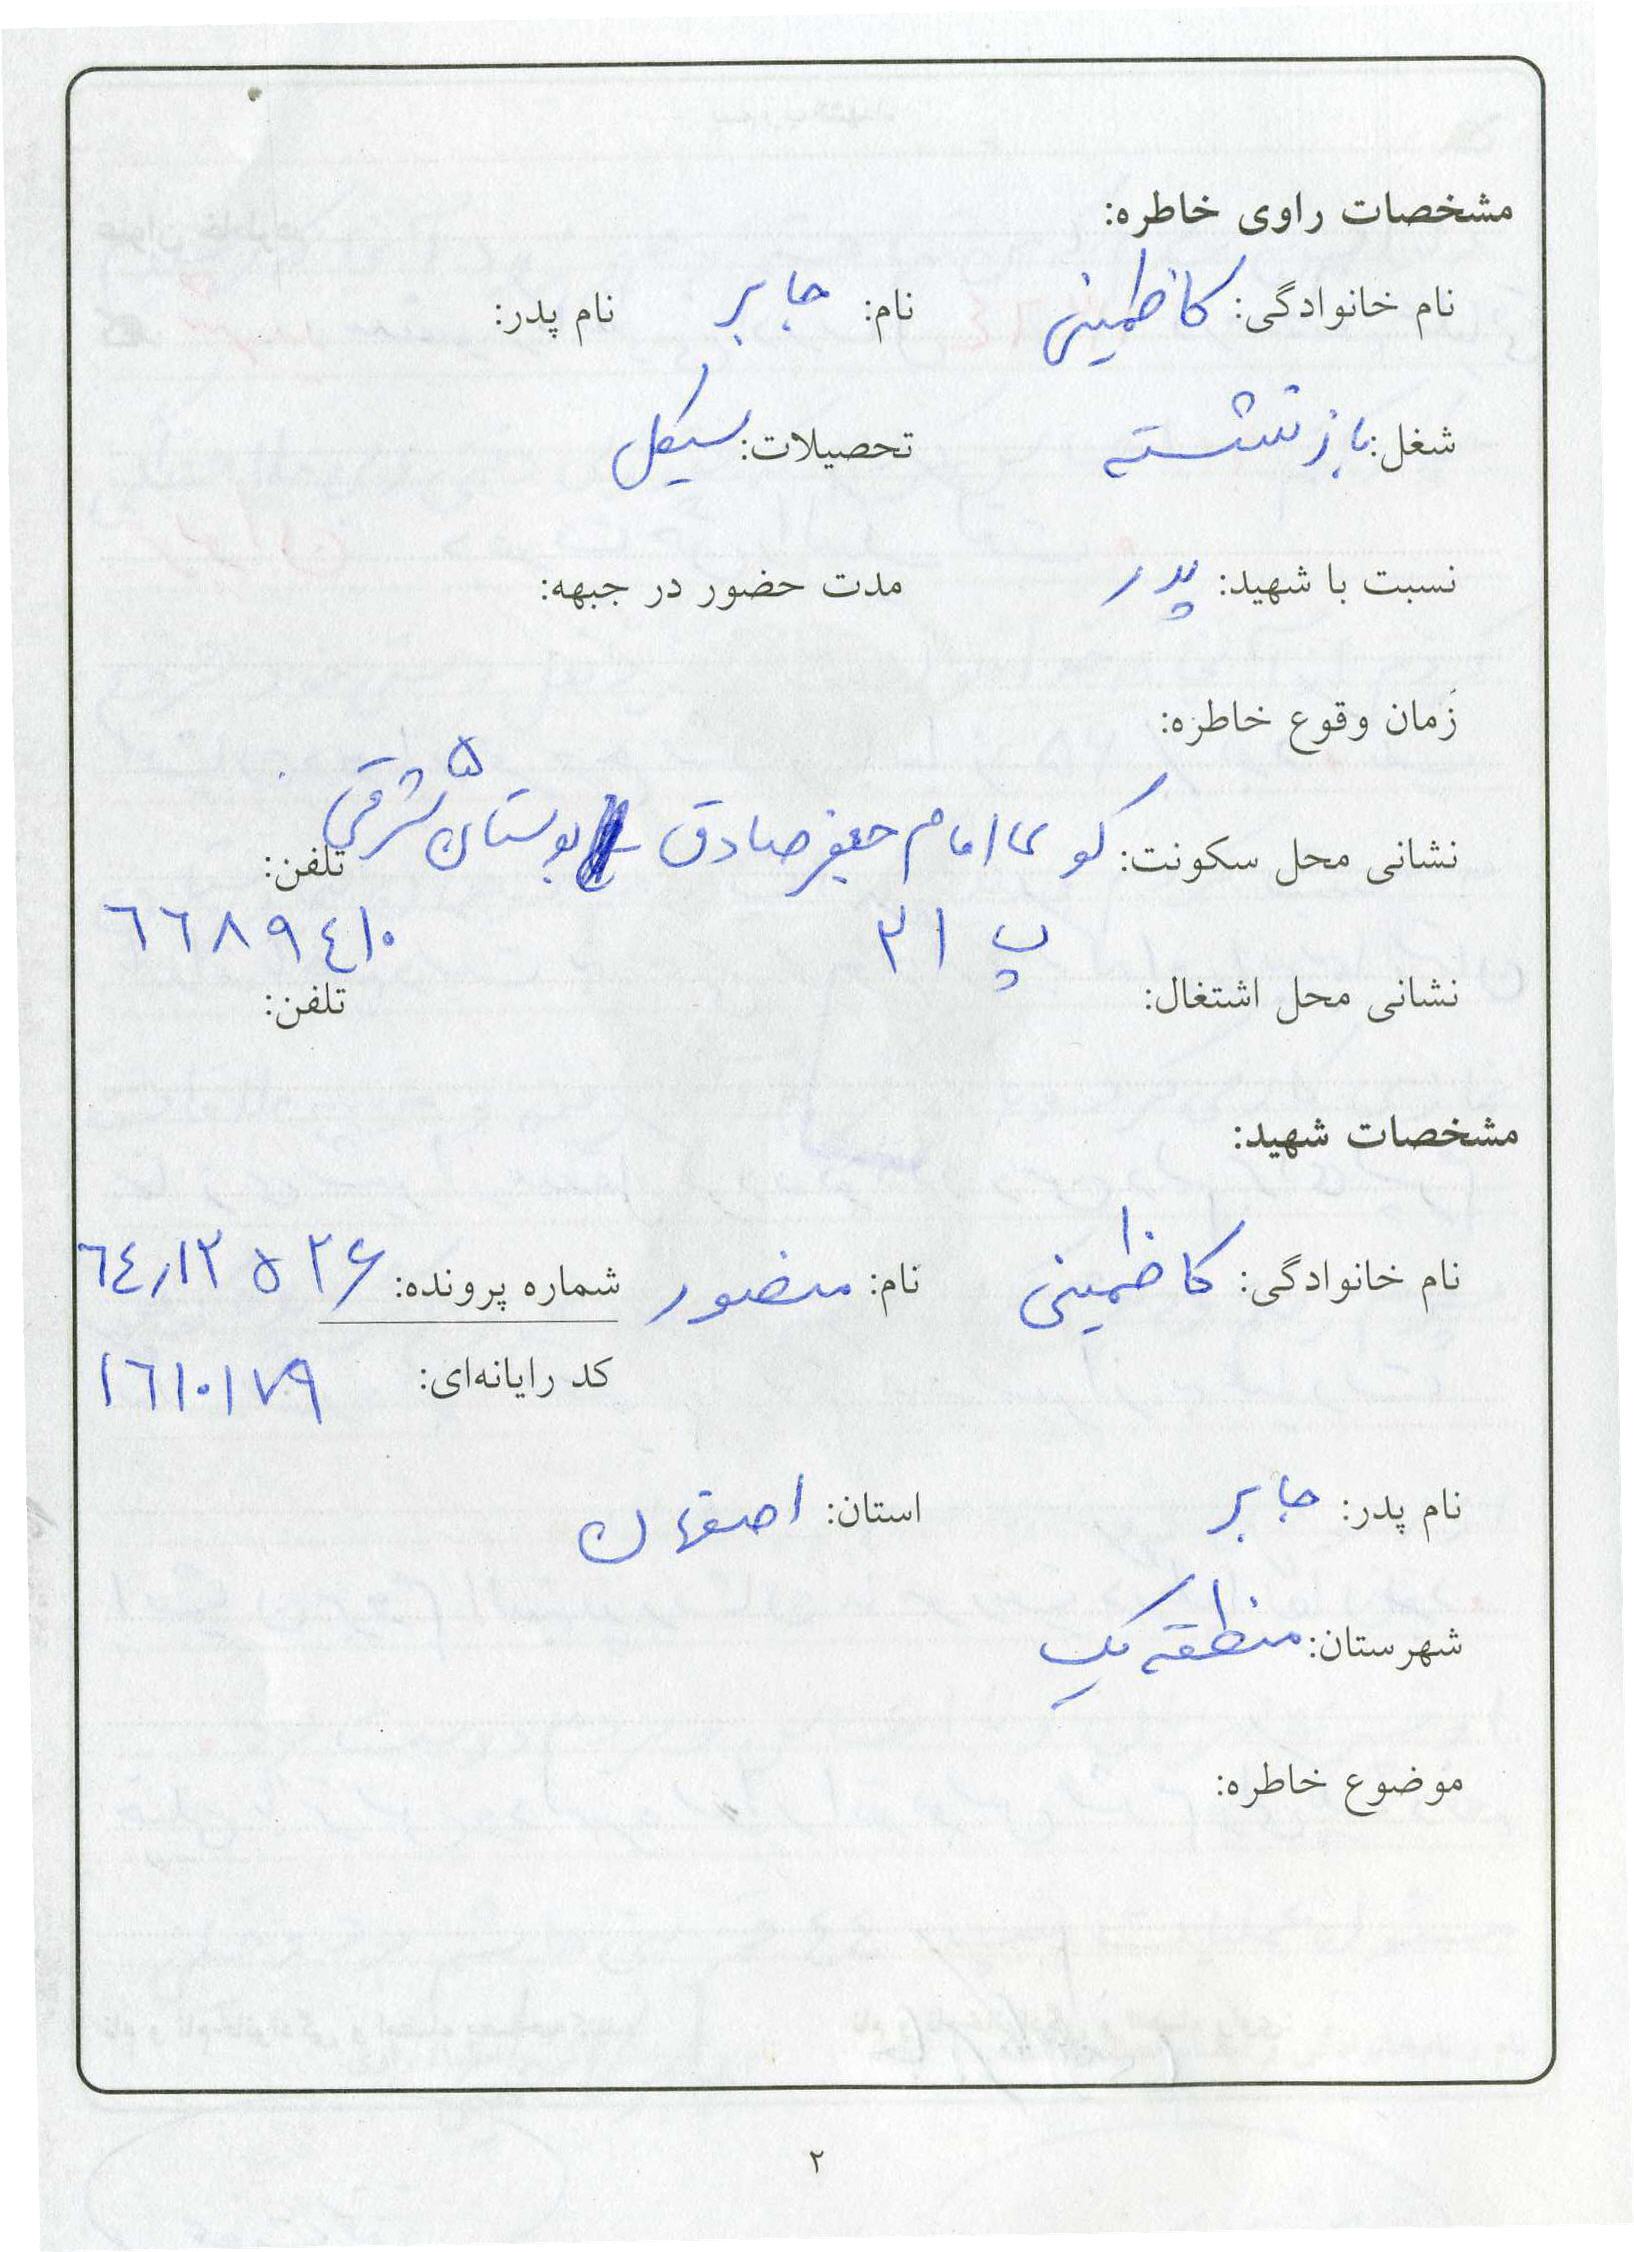 مشخصات راوی خاطره:
نام خانوادگی: کاظمینی نام: جابر نام پدر:
شغل: بازنشسته تحصیلات: سیکل
نسبت با شهید: پدر مدت حضور در جبهه:
زمان وقوع خاطره:
نشانی محل سکونت: کوی امام جعفر صادق بوستان ۵ شرقی تلفن:
پ ۲۱ ۶۶۸۹۴۱۰
نشانی محل اشتغال: تلفن:
مشخصات شهید:
نام خانوادگی: کاظمینی نام: منصور شماره پرونده: ۶۴،۱۲۵۲۶
کد رایانه‌ای: ۱۶۱۰۱۷۹
نام پدر: جابر استان: اصفهان
شهرستان: منطقه یک
موضوع خاطره:
۲